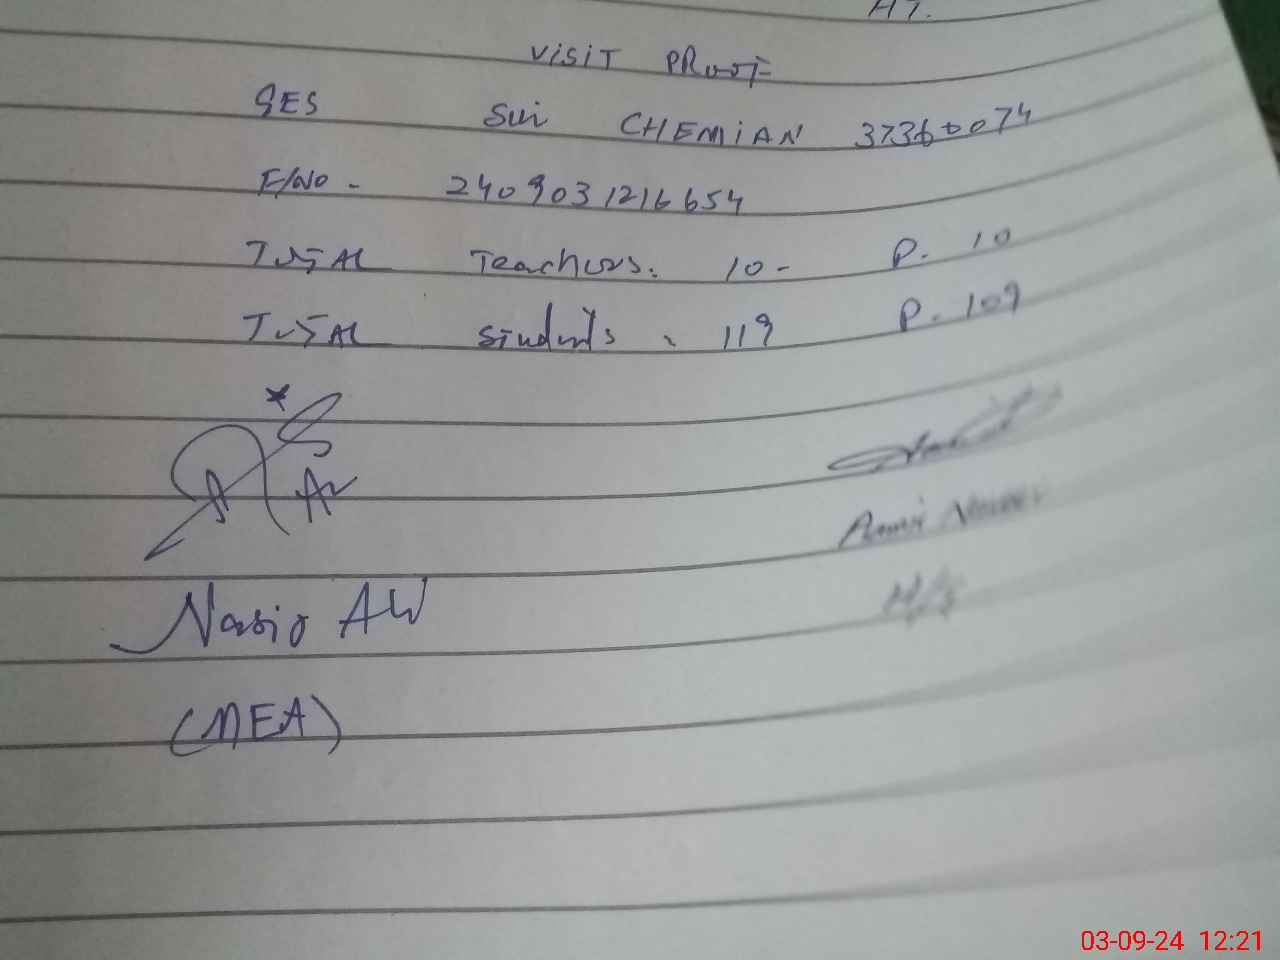 H7.
VISIT PROOF
GES Sui CHEMIAN 37360074
F/NO - 2409031216654
TOTAL Teachers. 10- P. 10
TOTAL Students. 119 P. 109
Nasir Ali
(MEA)
03-09-24 12:21